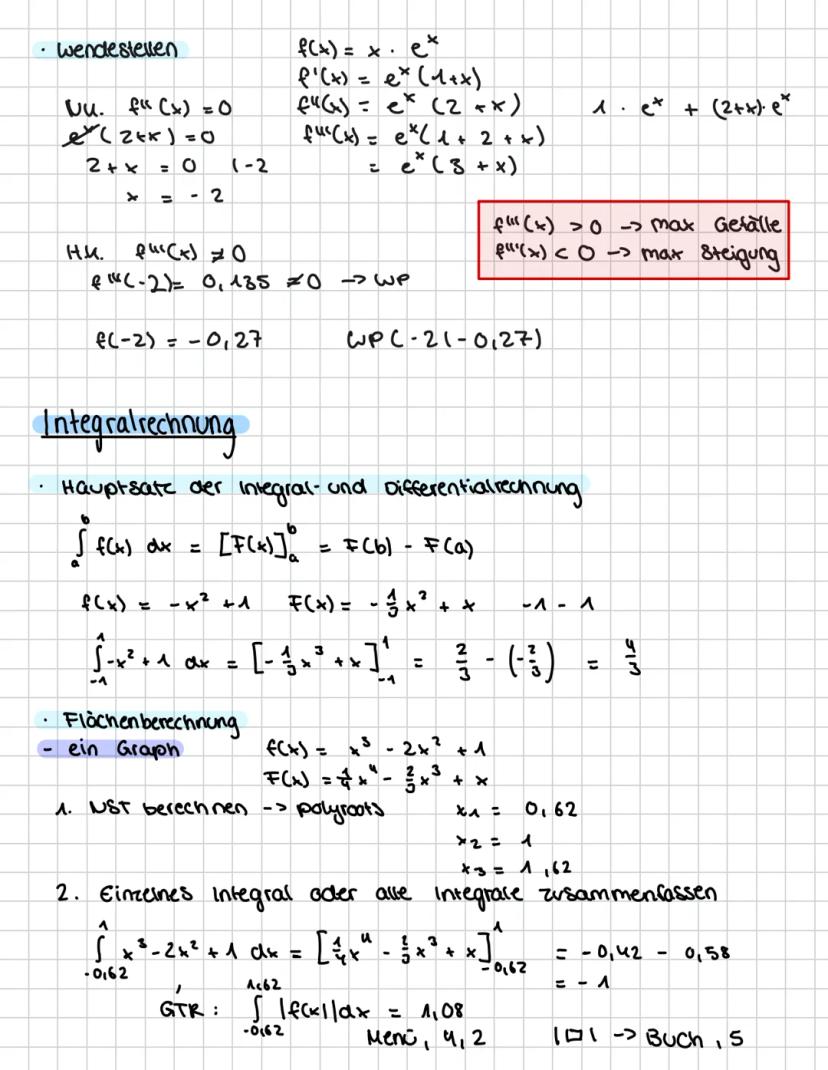 · Wendestellen f(x) = x · e^x
f'(x) = e^x (1+x)
NU. f''(x) = 0 f''(x) = e^x (2+x) 1 · e^x + (2+x)·e^x
e^x(2+x) = 0 f'''(x) = e^x(1 + 2 + x)
2 + x = 0 |-2 = e^x (3 + x)
x = - 2
f'''(x) > 0 -> max Gefälle
f'''(x) < 0 -> max Steigung
HU. f'''(x) ≠ 0
f'''(-2) = 0,135 ≠ 0 -> WP
f(-2) = -0,27 WP (-2|-0,27)
Integralrechnung
· Hauptsatz der Integral- und Differentialrechnung
∫_a^b f(x) dx = [F(x)]_a^b = F(b) - F(a)
f(x) = -x² + 1 F(x) = -1/3 x³ + x -1 - 1
∫_-1^1 -x² + 1 dx = [-1/3 x³ + x]_-1^1 = 2/3 - (-2/3) = 4/3
· Flächenberechnung
- ein Graph f(x) = x³ - 2x² + 1
F(x) = 1/4 x⁴ - 2/3 x³ + x
1. NST berechnen -> polyroots x1 = 0,62
x2 = 1
x3 = 1,62
2. Einzelnes Integral oder alle Integrale zusammenfassen
∫_-0,62^1 x³ - 2x² + 1 dx = [1/4 x⁴ - 2/3 x³ + x]_-0,62^1 = -0,42 - 0,58
= -1
GTR: ∫_-0,62^1,62 |f(x)|dx = 1,08
Menü, 4, 2 |□| -> Buch, 5